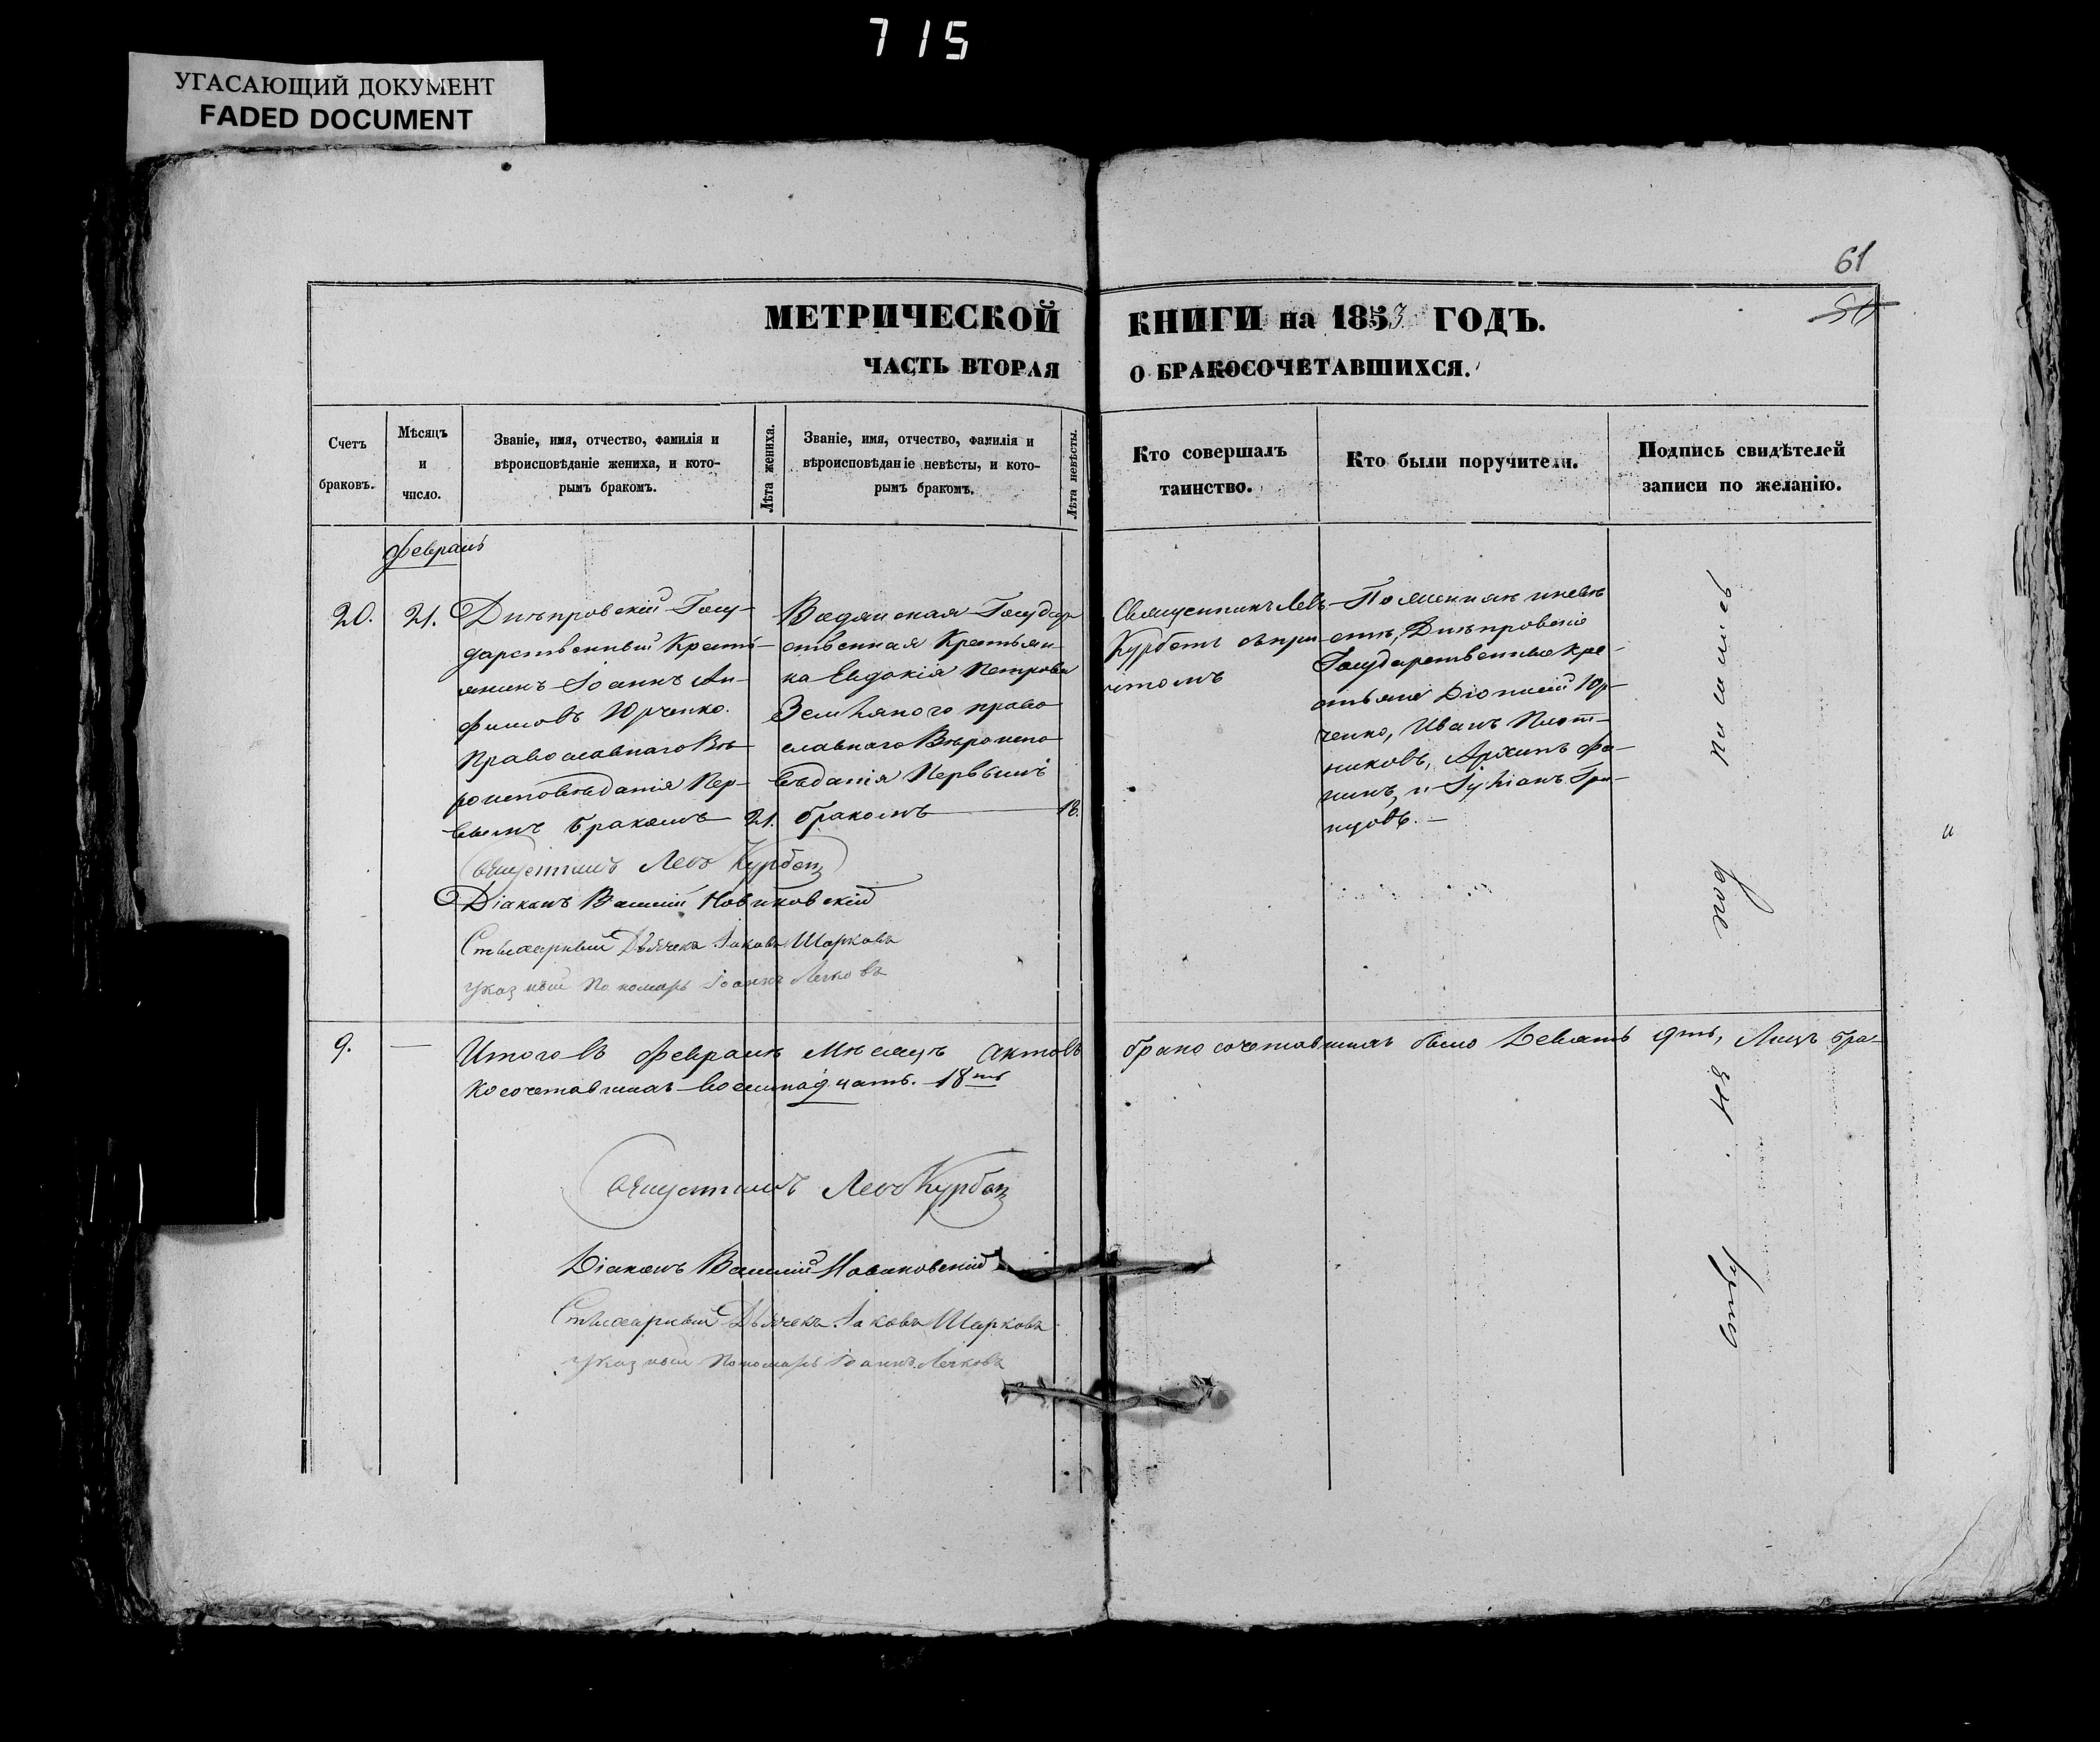 715
УГАСАЮЩИЙ ДОКУМЕНТ
FADED DOCUMENT
61
МЕТРИЧЕСКОЙ КНИГИ на 1853 ГОДЪ.
ЧАСТЬ ВТОРАЯ О БРАКОСОЧЕТАВШИХСЯ.
Счетъ
браковъ.
Мѣсяцъ
и
число.
Званіе, имя, отчество, фамилія и
вѣроисповѣданіе жениха, и кото-
рымъ бракомъ.
Лѣта жениха.
Званіе, имя, отчество, фамилія и
вѣроисповѣданіе невѣсты, и кото-
рымъ бракомъ.
Лѣта невѣсты.
Кто совершалъ
таинство.
Кто были поручители.
Подпись свидѣтелей
записи по желанію.
Февраль
20.
21.
Днѣпровскій Госу-
дарственный Кресть-
янинъ Іоаннъ
Юрченко.
Православнаго Вѣ-
роисповѣданія Пер-
вымъ бракомъ
21.
Водянская Государ
ственная Крестьян-
ка Евдокія Петрова
право
славнаго Вѣроиспо
вѣданія Первымъ
бракомъ
18.
Священникъ Левъ
Курбетъ съ при
чтомъ
По женихѣ и невѣ
стѣ, Днѣпровскіе
Государственные кре-
стьяне Діонисій Юр-
ченко, Иванъ Плот-
никовъ, Архипъ Фо-
минъ, и
Священникъ Левъ Курбетъ
Діаконъ Василій Новиковскій
Стихарный Дьячекъ Іаковъ Шарковъ
Указный Пономарь Іоаннъ Лечковъ
9. — Итого въ Февралѣ Мѣсяцѣ актовъ бракосочетавшихъ было Девять 9ть, Лицъ бра-
косочетавшихъ восемнадцать. 18ть
Священникъ Левъ Курбетъ
Діаконъ Василій Новиковскій
Стихарный Дьячекъ Іаковъ Шарковъ
Указный Пономарь Іоаннъ Лечковъ